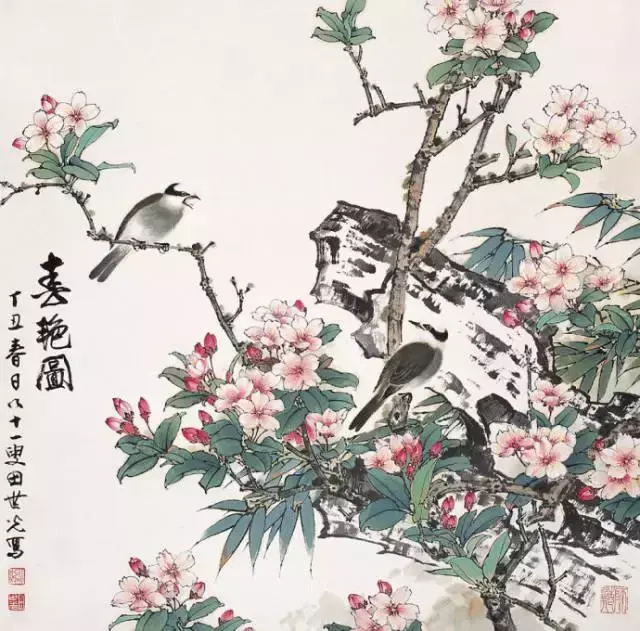 春艳圖
丁丑春日八十一叟田世光寫